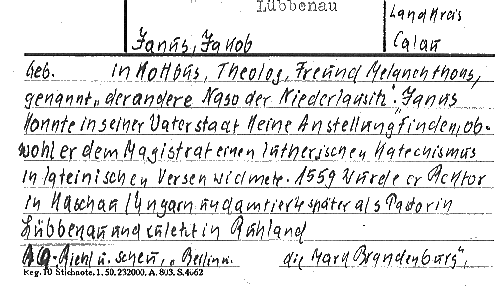 Lübbenau
Landkreis
Janus, Jakob
Calau
Geb. in Kottbus, Theolog, Freund Melanchthons,
genannt „der andere Naso der Niederlausitz". Janus
konnte in seiner Vaterstadt keine Anstellung finden, ob-
wohl er dem Magistrat einen lutherischen Katechismus
in lateinischen Versen widmete. 1559 wurde er Rektor
in Kaschau / Ungarn und amtierte später als Pastor in
Lübbenau und zuletzt in Ruhland
Riehl u. Scheu, „Berlin u. die Mark Brandenburg",
Reg. 10 Stichnote. 1. 50. 232000. A. 803. S. 4662